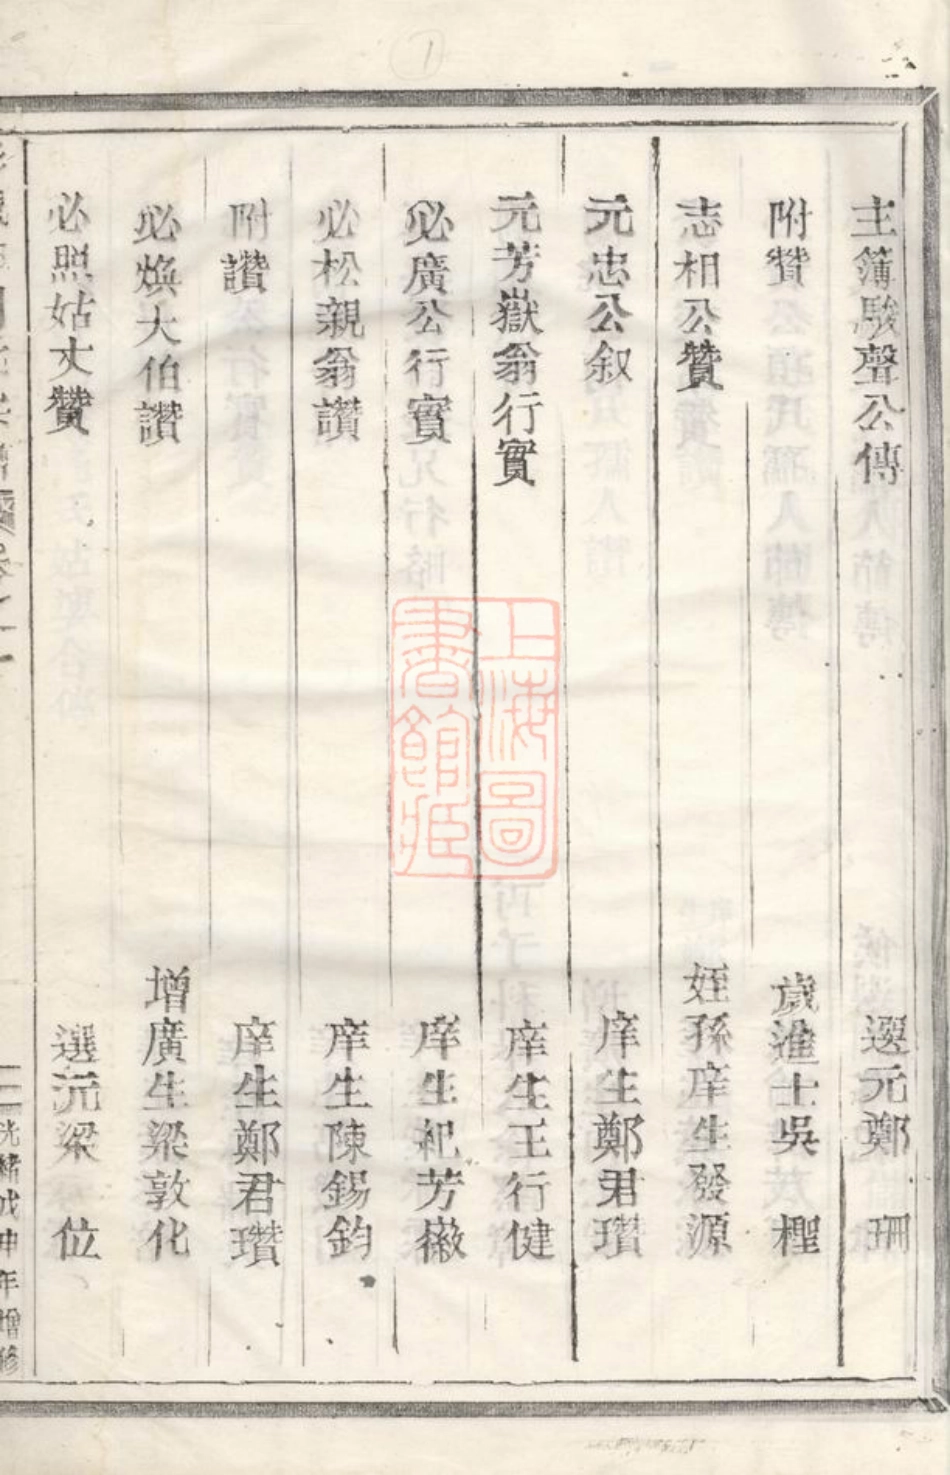 主簿駿聲公傳 選元鄭 珊
附贊 歲進士吳 檉
志相公贊 姪孫庠生發源
元忠公叙 庠生鄭君瓚
元芳嶽翁行實 庠生王行健
必廣公行實 庠生祀芳徽
必松親翁讚 庠生陳錫鈞
附讚 庠生鄭君瓚
必煥大伯讚 增廣生梁敦化
必照姑丈贊 選元梁 位
光緒戊申年增修
上海圖書館藏